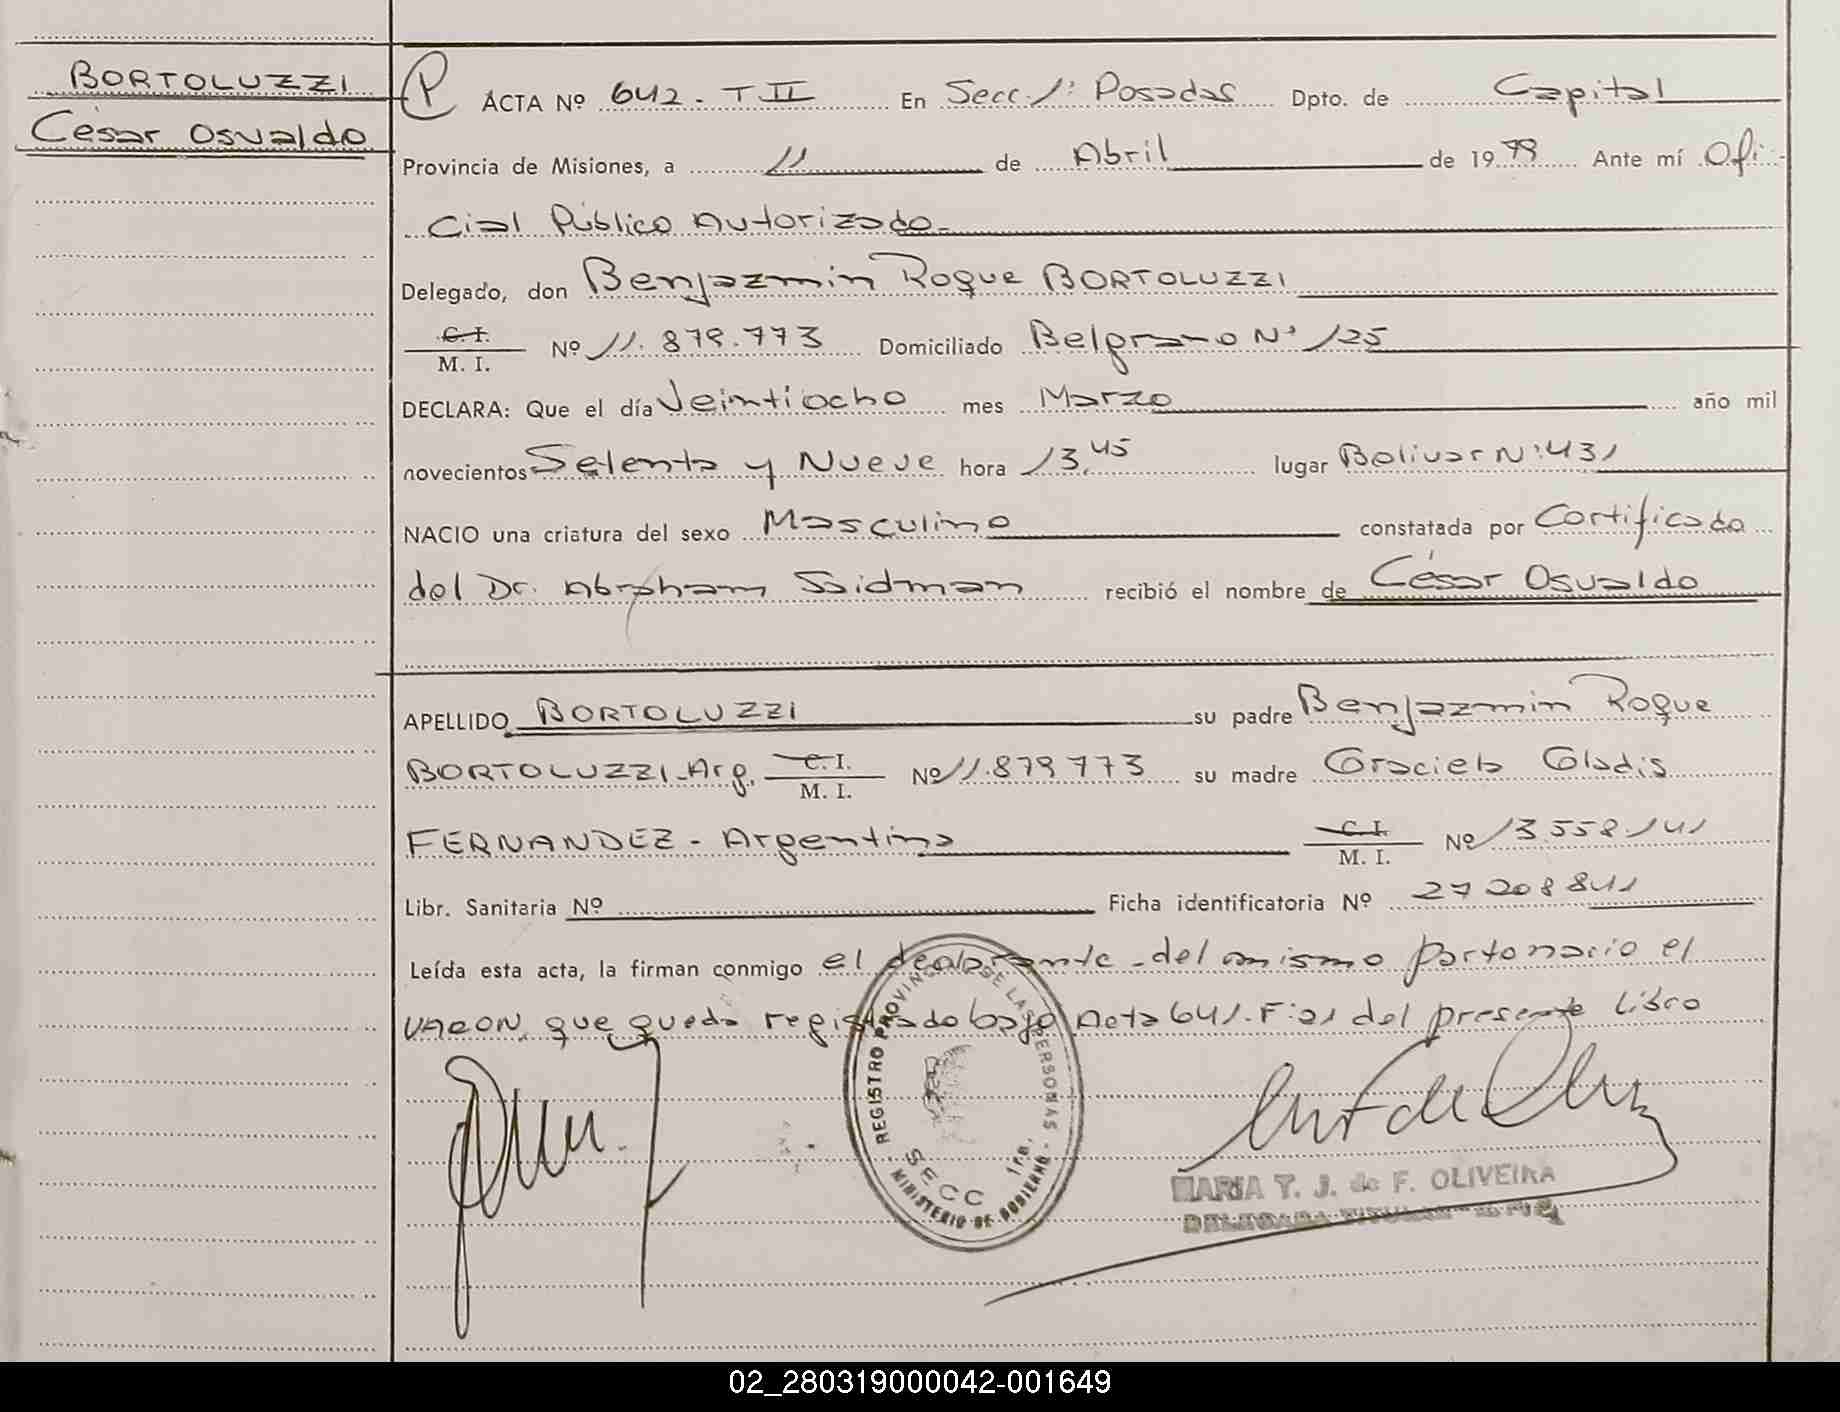 BORTOLUZZI
César Osvaldo
P ACTA Nº 642 - T II En Secc. 1ª Posadas Dpto. de Capital
Provincia de Misiones, a 11 de Abril de 1979 Ante mí Ofi-
cial Público Autorizado.
Delegado, don Benjazmin Roque BORTOLUZZI
C. I.
M. I. Nº 11.879.773 Domiciliado Belgrano Nº 125
DECLARA: Que el día Veintiocho mes Marzo año mil
novecientos Setenta y Nueve hora 13,45 lugar Bolivar Nº 431
NACIO una criatura del sexo Masculino constatada por Certificado
del Dr. Abraham Saidman recibió el nombre de César Osvaldo
APELLIDO BORTOLUZZI su padre Benjazmin Roque
BORTOLUZZI - Arg. C. I.
M. I. Nº 11.879.773 su madre Graciela Gladis
FERNANDEZ - Argentina C. I.
M. I. Nº 13.558.141
Libr. Sanitaria Nº Ficha identificatoria Nº 27208841
Leída esta acta, la firman conmigo el declarante - del mismo partonacio el
VARON, que queda registrado bajo Acta 641. Fº 21 del presente Libro
REGISTRO PROVINCIAL DE LAS PERSONAS - MINISTERIO DE GOBIERNO -
SECC 1ra.
MARIA T. J. de F. OLIVEIRA
DELEGADA TITULAR
02_280319000042-001649